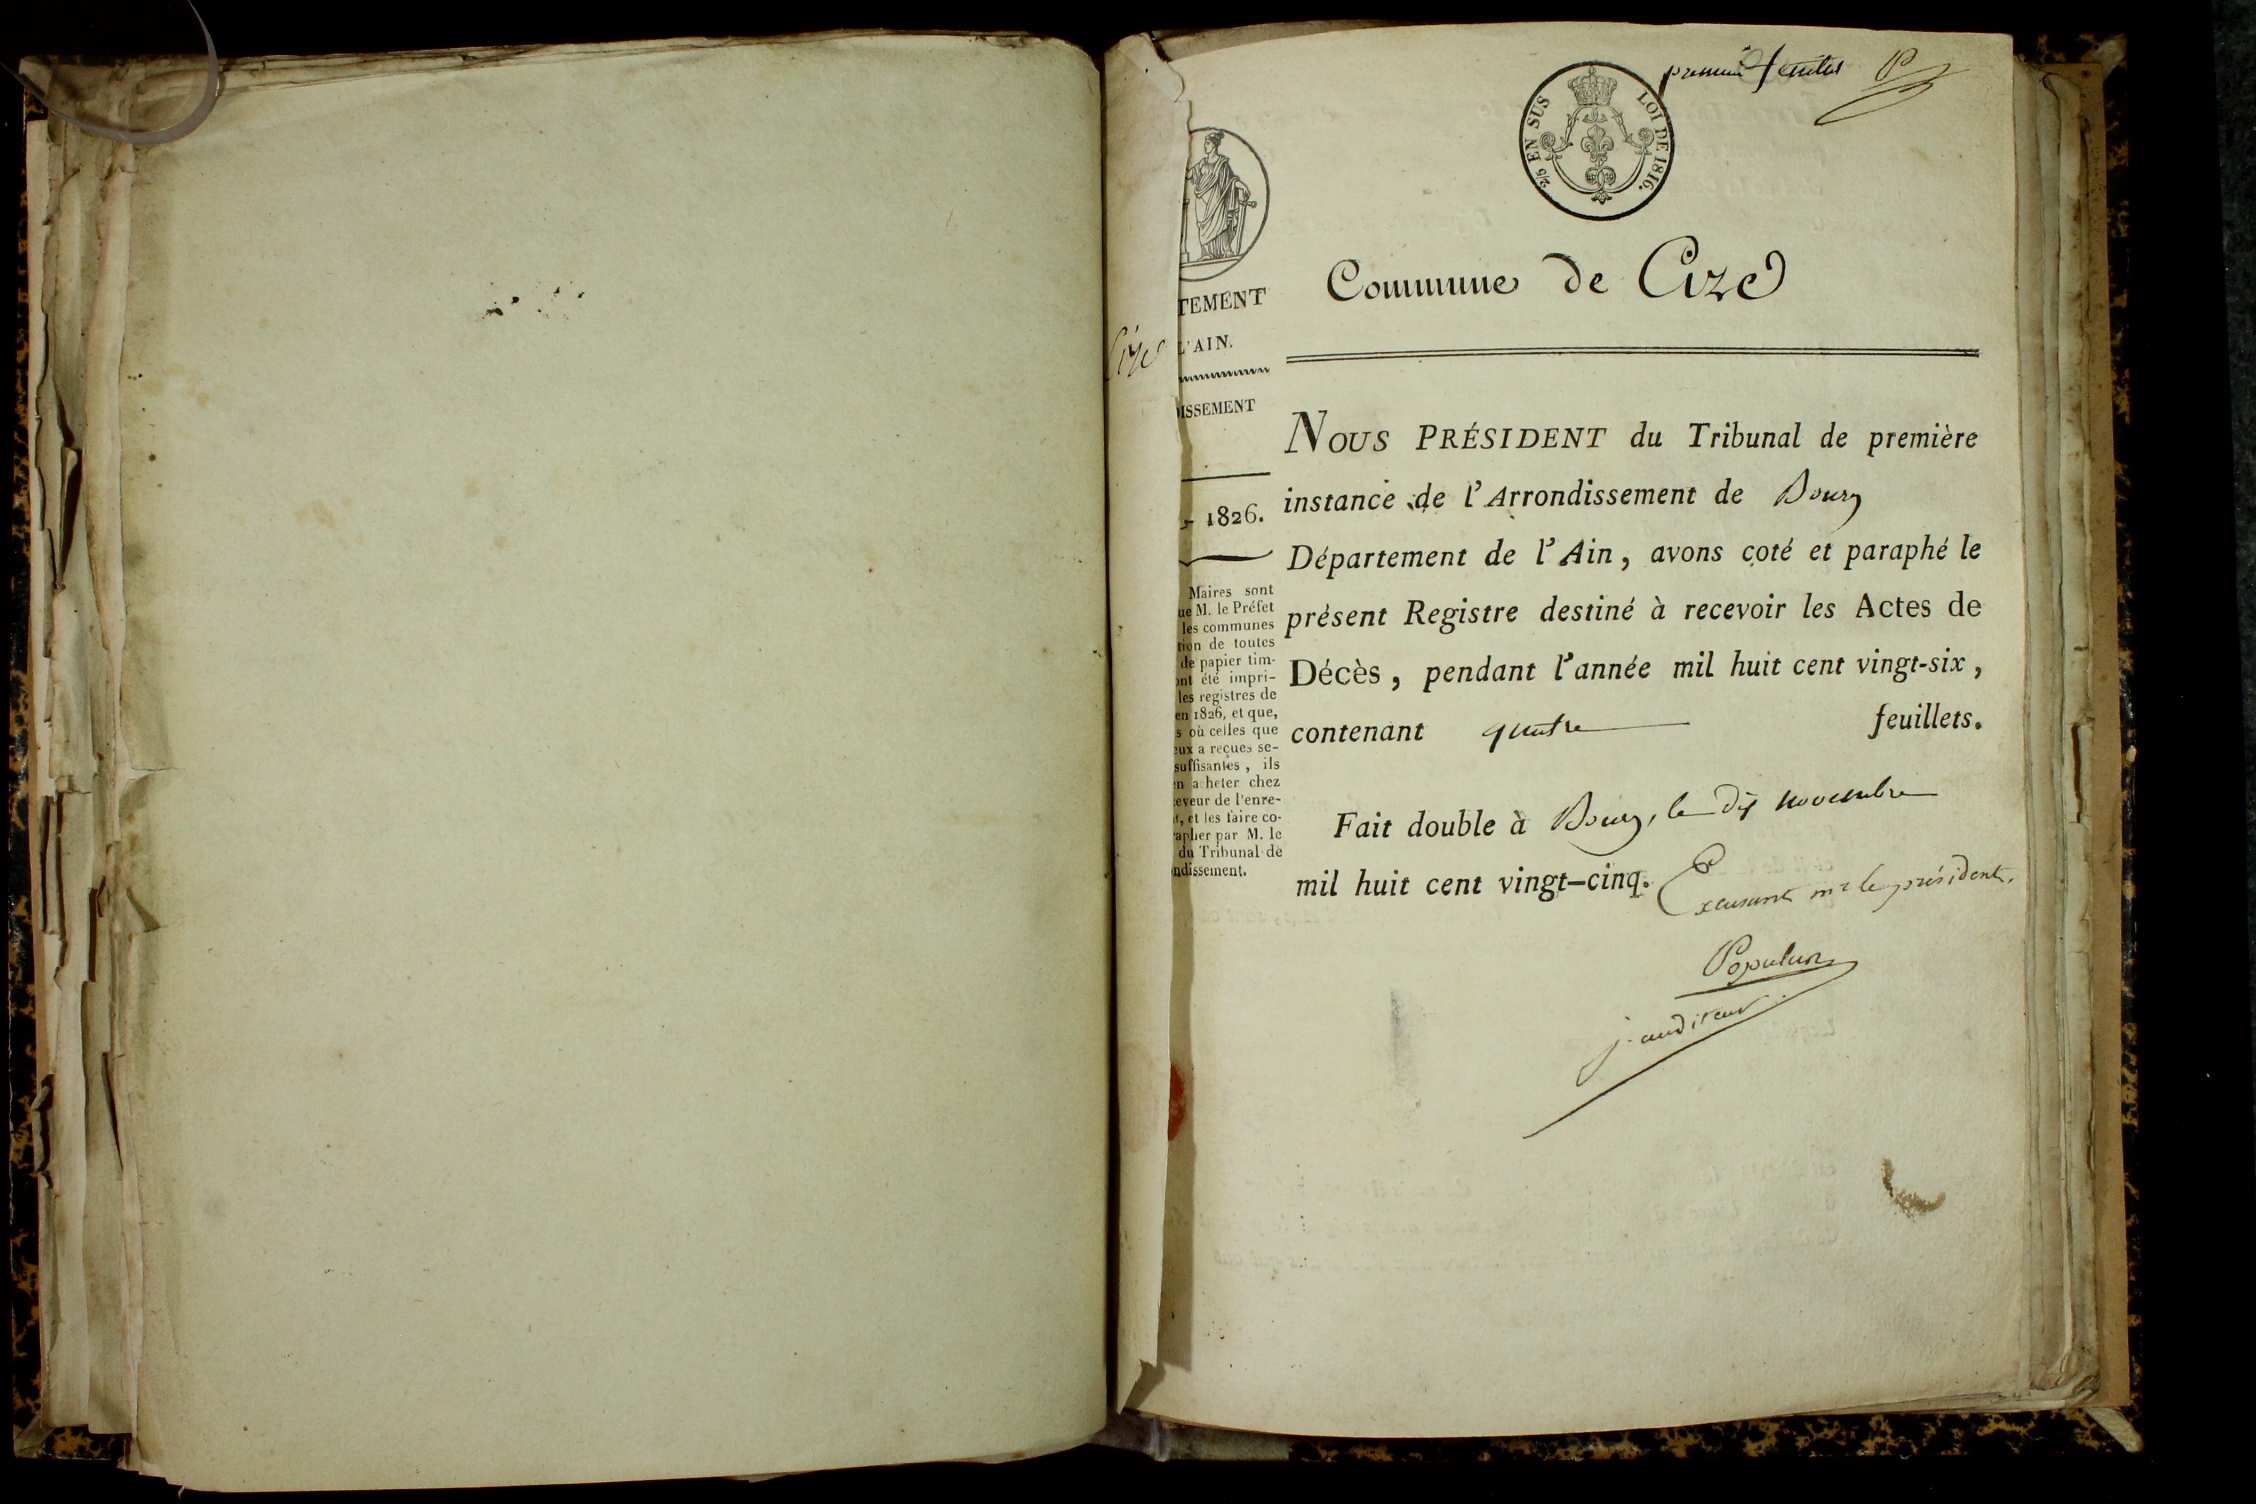 premier feuillet P
2/5 EN SUS LOI DE 1816.
Commune de Cize
Cize
TEMENT
L'AIN.
DISSEMENT
1826.
Maires sont
ue M. le Préfet
les communes
tion de toutes
de papier tim-
ont été impri-
les registres de
en 1826, et que,
s où celles que
eux a reçues se-
suffisantes, ils
en acheter chez
ceveur de l'enre-
t, et les faire co-
rapher par M. le
du Tribunal de
ndissement.
NOUS PRÉSIDENT du Tribunal de première
instance de l'Arrondissement de Bourg
Département de l'Ain, avons coté et paraphé le
présent Registre destiné à recevoir les Actes de
Décès, pendant l'année mil huit cent vingt-six,
contenant quatre feuillets.
Fait double à Bourg, le dix novembre
mil huit cent vingt-cinq. Excusant mr le président.
Populus
j. auditeur